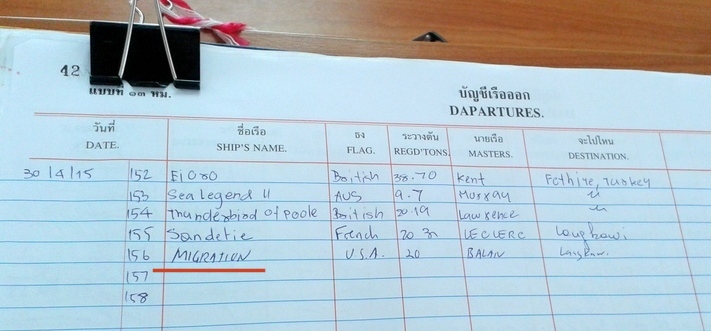 42
แบบที่ ๑๓ ทม.
บัญชีเรือออก
DAPARTURES.
วันที่ ชื่อเรือ ธง ระวางตัน นายเรือ จะไปไหน
DATE. SHIP'S NAME. FLAG. REGD'TONS. MASTERS. DESTINATION.
30/4/15 152 British 38.70 Kent Turkey
153 Sea Legend II AUS 9.7 Murray "
154 Thunderbird of Poole British 20.19 Lawrence "
155 Sandetie French LECLERC Langkawi
156 MIGRATION U.S.A. 20 BALAN Langkawi
157
158